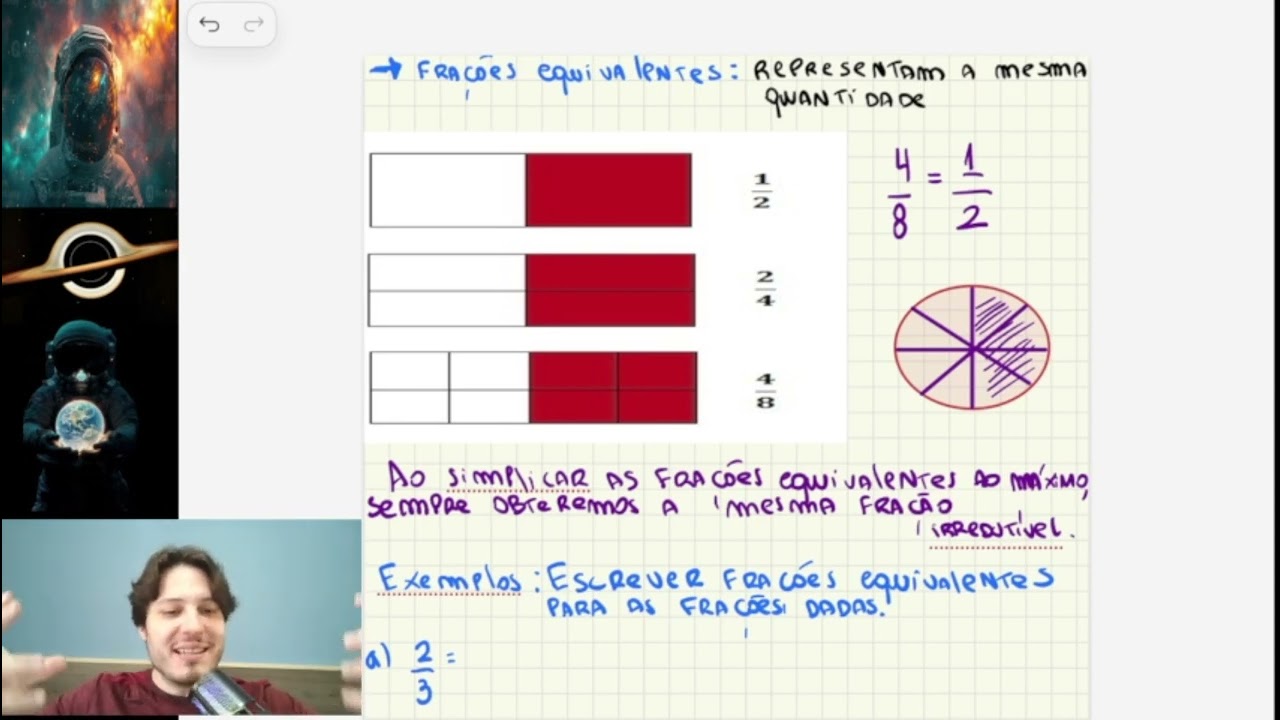 → FRAÇÕES EQUIVALENTES: REPRESENTAM A MESMA
QUANTIDADE
1/2
4/8 = 1/2
2/4
4/8
AO SIMPLICAR AS FRAÇÕES EQUIVALENTES AO MÁXIMO,
SEMPRE OBTEREMOS A MESMA FRAÇÃO
IRREDUTÍVEL.
EXEMPLOS: ESCREVER FRAÇÕES EQUIVALENTES
PARA AS FRAÇÕES DADAS.
a) 2/3 =